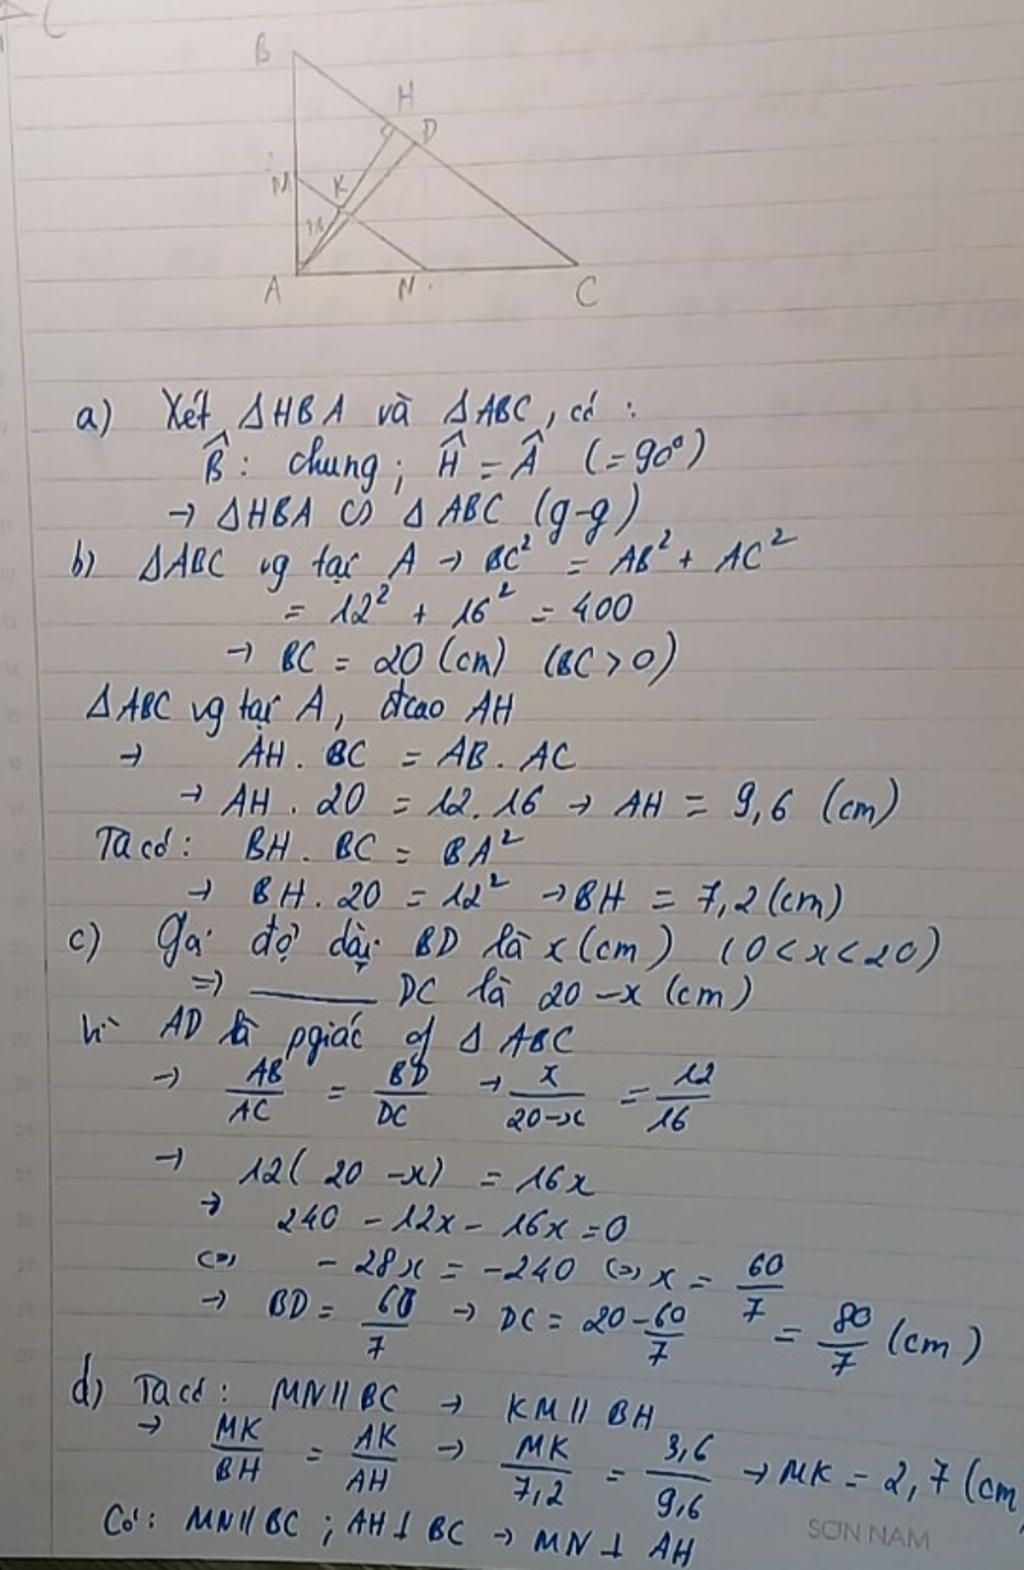 B
H
D
M
K
3,6
A
N
C
a) Xét ΔHBA và ΔABC, có :
B̂ : chung ; Ĥ = Â (= 90°)
→ ΔHBA ∽ ΔABC (g-g)
b) ΔABC vg tại A → BC² = AB² + AC²
= 12² + 16² = 400
→ BC = 20 (cm) (BC > 0)
ΔABC vg tại A, đcao AH
→ AH . BC = AB . AC
→ AH . 20 = 12 . 16 → AH = 9,6 (cm)
Ta có : BH . BC = BA²
→ BH . 20 = 12² → BH = 7,2 (cm)
c) Gọi độ dài BD là x (cm) (0 < x < 20)
=> ——— DC là 20 - x (cm)
Vì AD là pgiác of Δ ABC
→ AB/AC = BD/DC → x/(20-x) = 12/16
→ 12( 20 - x) = 16x
→ 240 - 12x - 16x = 0
<=> - 28x = -240 <=> x = 60/7
→ BD = 60/7 → DC = 20 - 60/7 = 80/7 (cm)
d) Ta có : MN // BC → KM // BH
→ MK/BH = AK/AH → MK/7,2 = 3,6/9,6 → MK = 2,7 (cm)
Có : MN // BC ; AH ⊥ BC → MN ⊥ AH
SƠN NAM